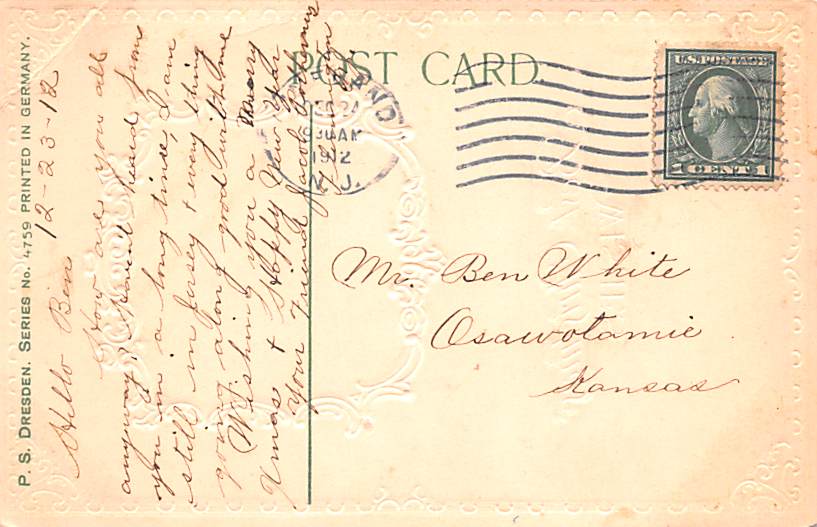 P. S. DRESDEN. SERIES No. 4759 PRINTED IN GERMANY.
POST CARD.
1912
N. J.
U.S. POSTAGE
1 CENT 1
Hello Ben 12-23-12
How are you all
anyway? Havent heard from
you in a long time, I am
still in Jersey & every thing
going along good with me
Wishing you a Merry
Xmas & Happy New Year
Your Friend Jacob
Mr. Ben White
Osawotamie
Kansas